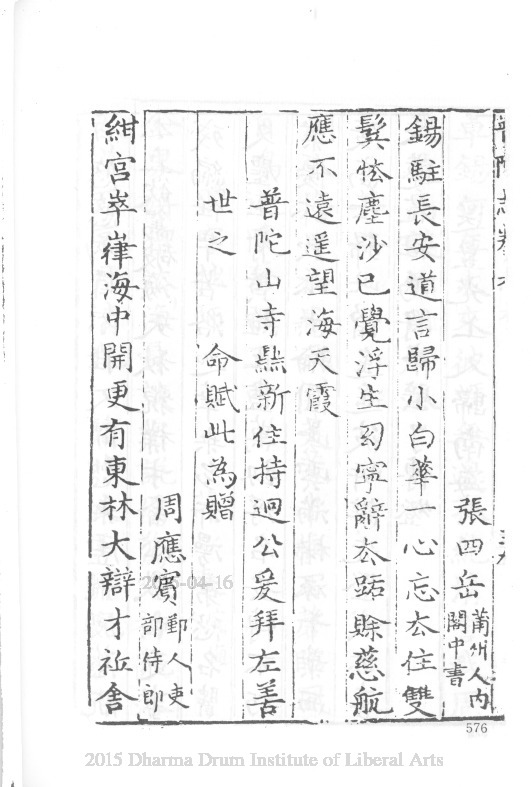 張四岳 莆州人內閣中書
錫駐長安道言歸小白華一心忘厺住雙
鬂恠塵沙已覺浮生幻寧辭厺路賖慈航
應不遠遥望海天霞
普陀山寺鼎新住持迥公爰拜左善
世之 命賦此為贈
周應賓 鄞人吏部侍郎
紺宫崒嵂海中開更有東林大辯才祇舍
576
2015 Dharma Drum Institute of Liberal Arts